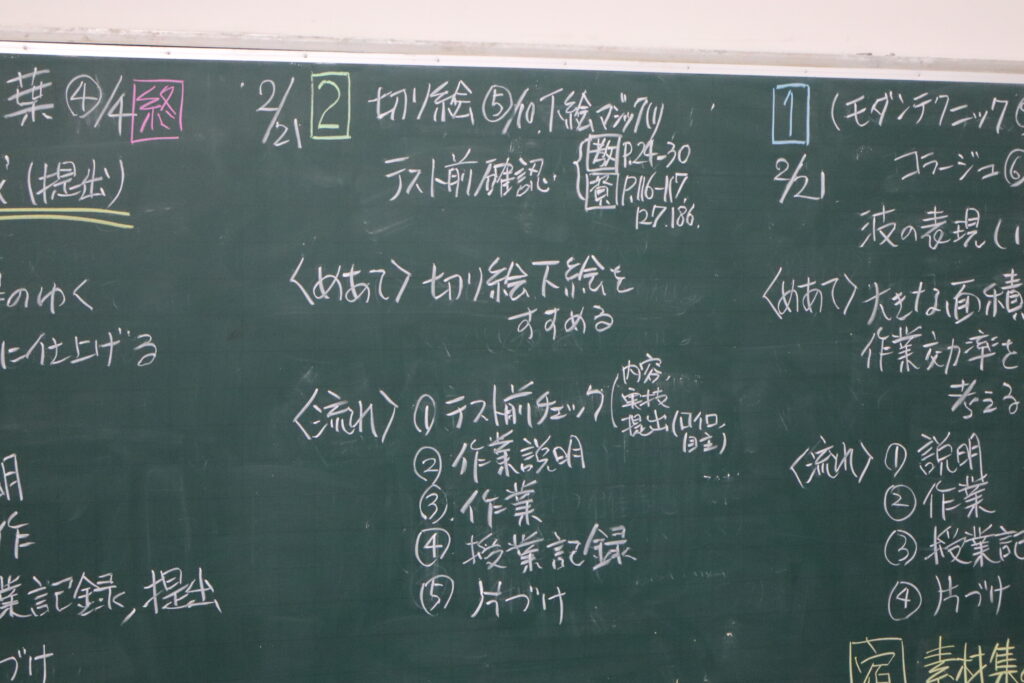 葉④/4 終
(提出)
のゆく
に仕上げる
明
作
業記録,提出
づけ
2/21 2 切り絵⑤/10.下絵マジック(1)
テスト前確認. 教 P.24-30
資 P.116-117.
127.186.
〈めあて〉切り絵下絵を
すすめる
〈流れ〉①テスト前チェック(内容.
実技
提出(ロイロ.
自主)
②作業説明
③.作業
④授業記録
⑤片づけ
1 (モダンテクニック
2/21 コラージュ⑥
波の表現(1
〈めあて〉大きな面積
作業効率を
考える
〈流れ〉①説明
②作業
③授業記
④片づけ
宿 素材集